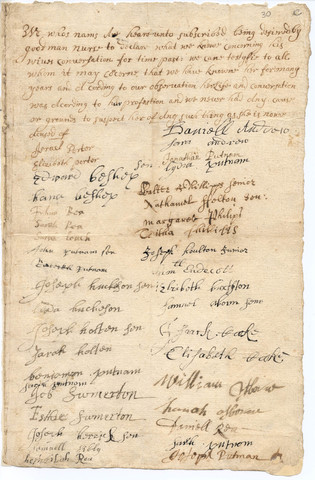 30
We whos nams Are heareunto subscribed being desiered by
goodman nurse to declare what we knewe concerning his
wives conversation for time past: we cane testyfie to all
whom it may concerne that we have knowne her for many
years and Acording to our observation her life and conversation
was Acording to her profestion and we never had Any cause
or grounds to suspect her of Any such thing as she is nowe
Acused of
Israel Porter
Elizabeth Porter
Edward beshep sen
hana beshep
Joshua Rea
Sarah Rea
Sarah Leach
John Putnam sen
Rebecka Putnam
Joseph hucheson sen
leda hucheson
Joseph holten sen
Sarah holten
beniaman putnam
Sarah putnam
Job Swinerton
Esther Swinerton
Joseph herrick sen
Samuell Sibly
Hephzibah Rea
Daniell Andrew
Sara andrew
Jonathan Putnam
Lydia Putnam
Walter Phillipps senior
Nathaniel Felton Sen:
margaret Philips
Tabitha Phillipps
Joseph houlton Junior
Samuell Endecott
Elizabeth buxston
Samuel Aborn senr
Isaack Cooke
Elisabeth Cooke
William Osborne
hanah osborne
Daniell Rea
Sarah Putnam
Joseph Putman